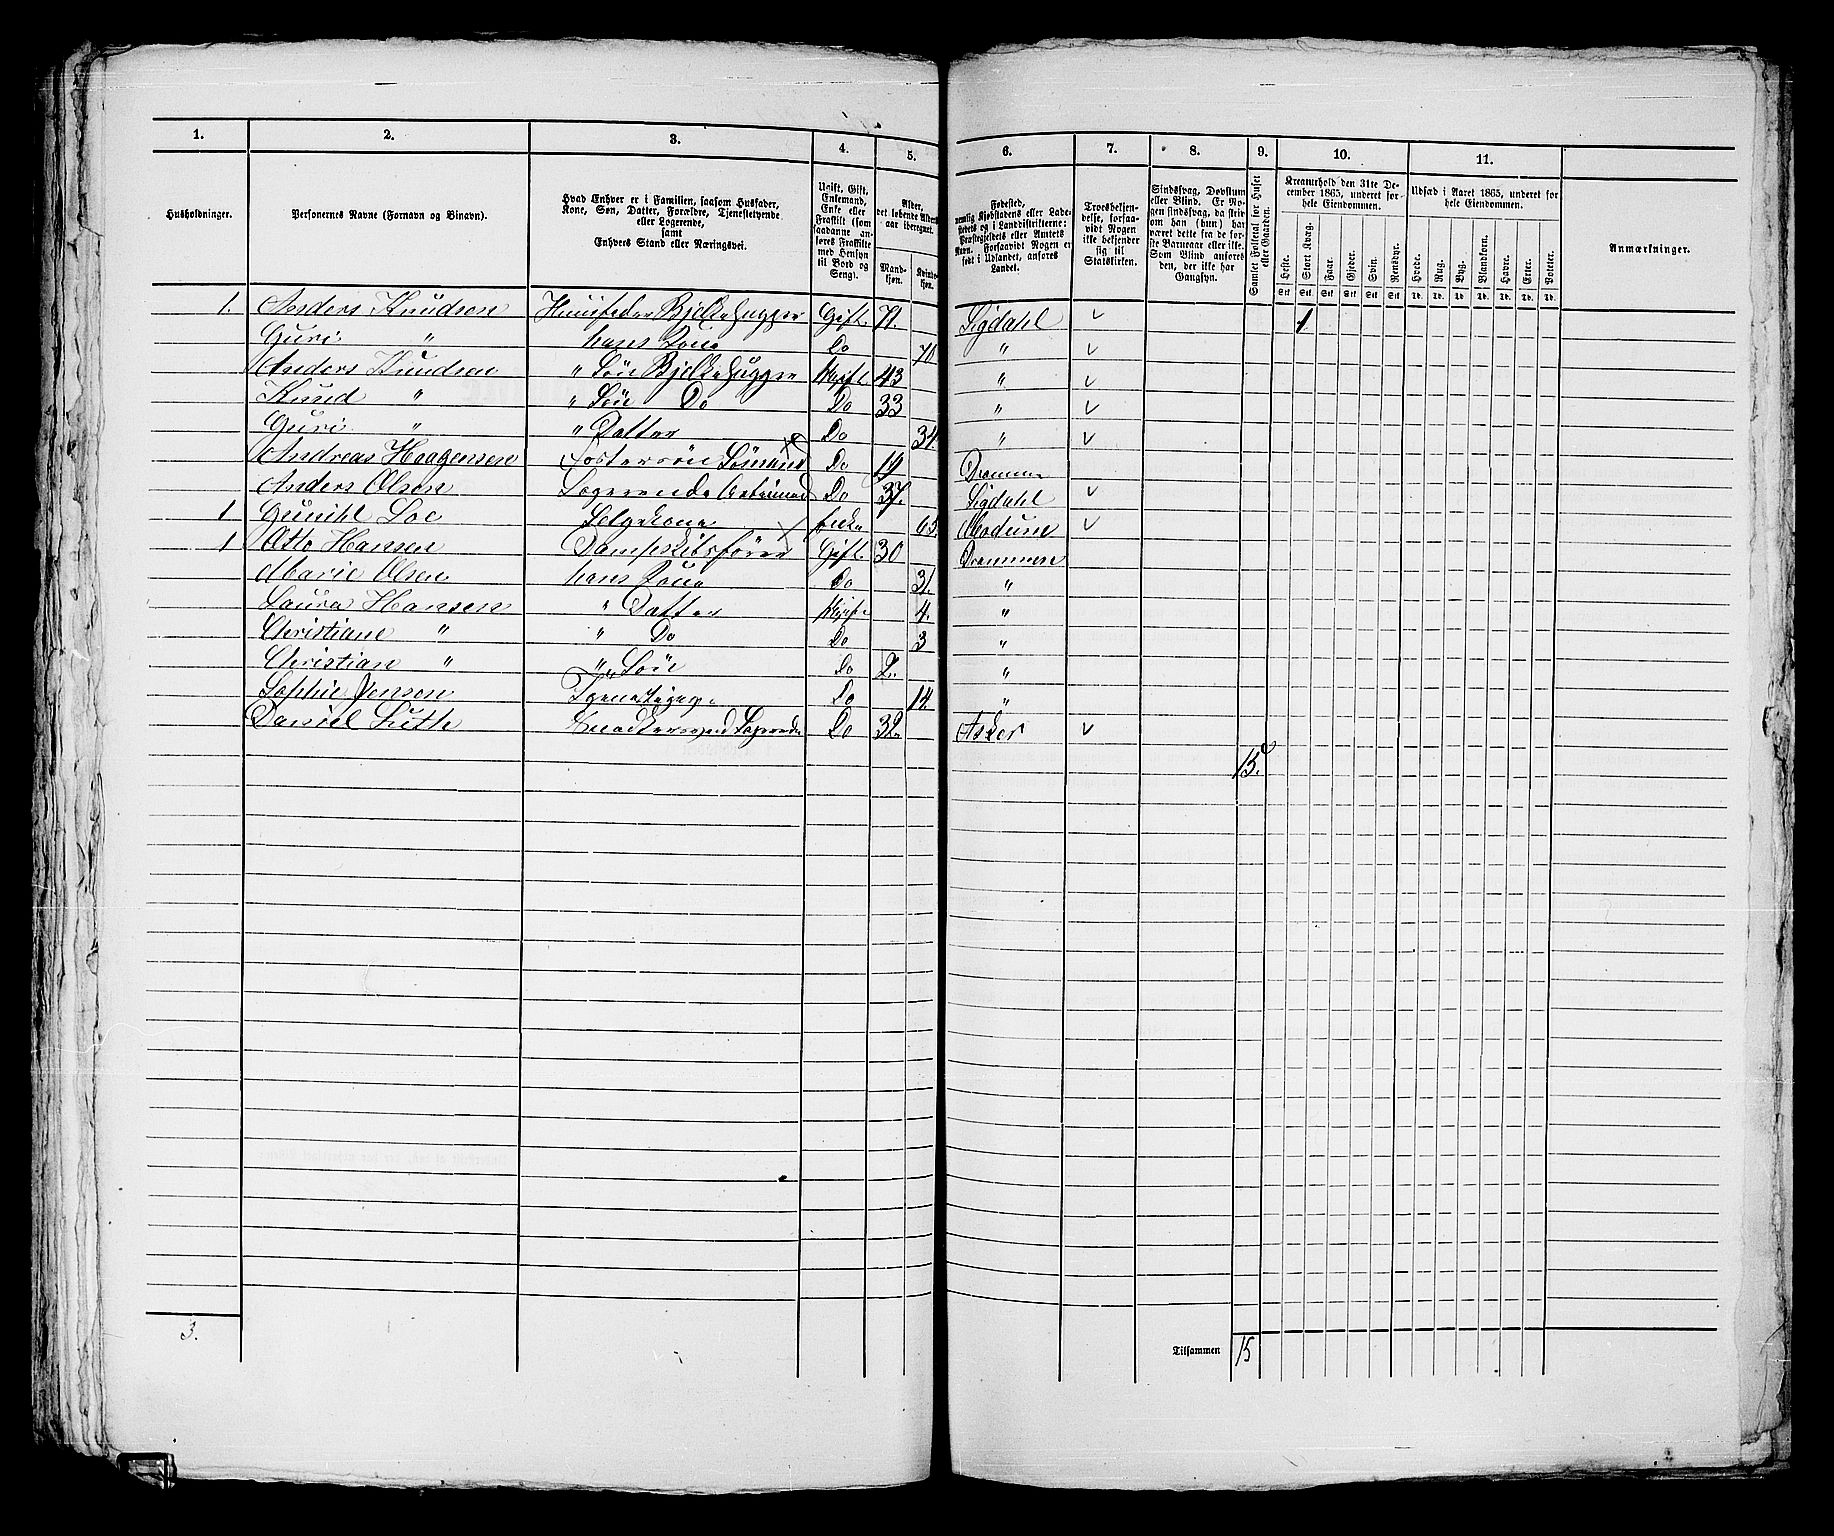 1. 2. 3. 4. 5. 6. 7. 8. 9. 10. 11.
Husholdninger.
Personernes Navne (Fornavn og Binavn).
Hvad Enhver er i Familien, saasom Husfader,
Kone, Søn, Datter, Forældre, Tjenestetyende
eller Logerende,
samt
Enhvers Stand eller Næringsvei.
Ugift, Gift,
Enkemand,
Enke eller
Fraskilt (som
saadanne an-
føres Fraskilte
med Hensyn
til Bord og
Seng).
Alder,
det løbende Alders-
aar iberegnet.
Mand-
kjøn.
Kvinde-
kjøn.
Fødested,
nemlig Kjøbstadens eller Lade-
stedets og i Landdistrikterne:
Præstegjeldets eller Amtets
Navn. Forsaavidt Nogen er
født i Udlandet, anføres
Landet.
Troesbekjen-
delse, forsaa-
vidt Nogen
ikke bekjender
sig til
Statskirken.
Sindssvag, Døvstum
eller Blind. Er No-
gen sindssvag, da skriv
om han (hun) har
været dette fra de før-
ste Barneaar eller ikke.
Som Blind anføres
den, der ikke har
Gangsyn.
Samlet Folketal for Huset
eller Gaarden.
Kreaturhold den 31te De-
cember 1865, underet før-
hele Eiendommen.
Heste. Stort Kvæg. Faar. Gjeder. Svin. Rensdyr.
Stk Stk Stk Stk Stk Stk
Udsæd i Aaret 1865, underet for
hele Eiendommen.
Hvede. Rug. Byg. Blandkorn. Havre. Erter. Poteter.
Td. Td. Td. Td. Td. Td. Td.
Anmærkninger.
1. Anders Knudsen Huusfader Bjelkehugger Gift. 71. Sigdahl 1
Guri " hans Kone Do 70 "
Anders Knudsen " Sön Bjelkehugger Ugift 43 "
Knud " " Sön Do Do 33 "
Guri " " Datter Do 34. "
Andreas Haagensen Fostersön Sömand Do 19 Drammen
Anders Olsen Logerende Do 37. Sigdahl
1 Gunild Loe Enke 65. Modum
1 Otto Hansen Dampskibsförer Gift. 30 Drammen
Marie Olsen hans Kone Do 31. "
Laura Hansen " Datter Ugift 4. "
Christiane " " Do Do 3 "
Christian " " Sön Do 2. "
Sophie Jonson Tjenestepige Do "
Daniel Logerende Do 32. Asker
15.
3.
Tilsammen 15